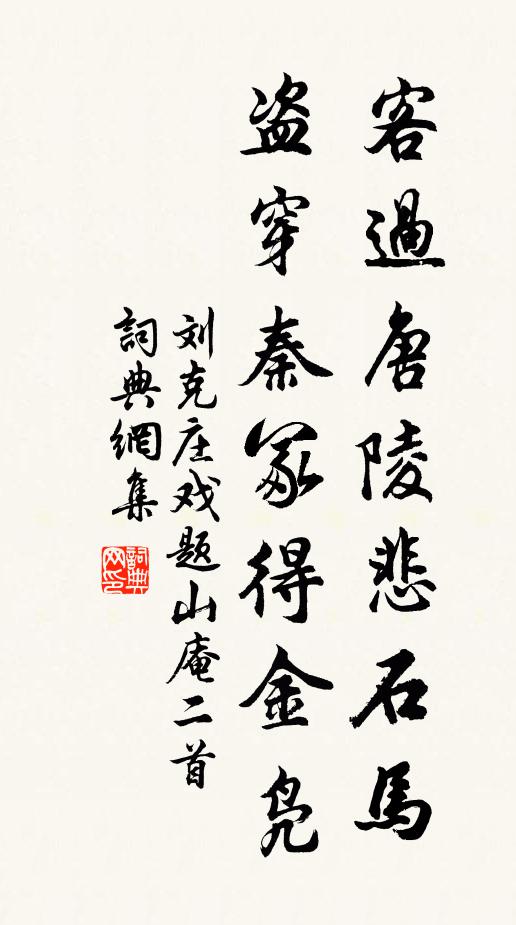 客過唐陵悲石馬
盗穿秦冢得金凫
刘克庄戏题山庵二首
詞典網集
詞典网印